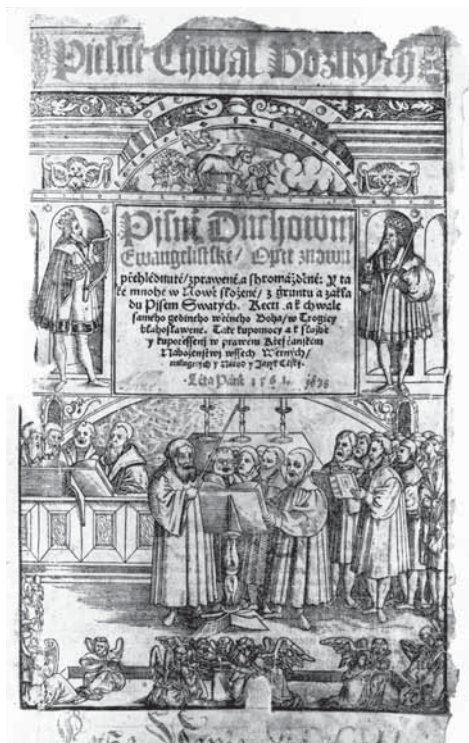 Pisně Chwal Božskych
Pisně Duchownj
Ewangelistské/ Opět znowu
přehlédnuté/zprawené a shromážděné: Y ta
ké mnohé w Nowě složené/ z gruntu a zákla
du Pijsem Swatych. Kecti a k chwále
samého gediného wěčného Boha/ w Trogicy
blahoslawené. Také kupomocy a k službě
y kupotěssenj w prawém Křesťanském
Náboženstwj wssech Wěrných/
milugjcých y Národ y Jazyk Cžský.
Léta Páně 1561. 1698